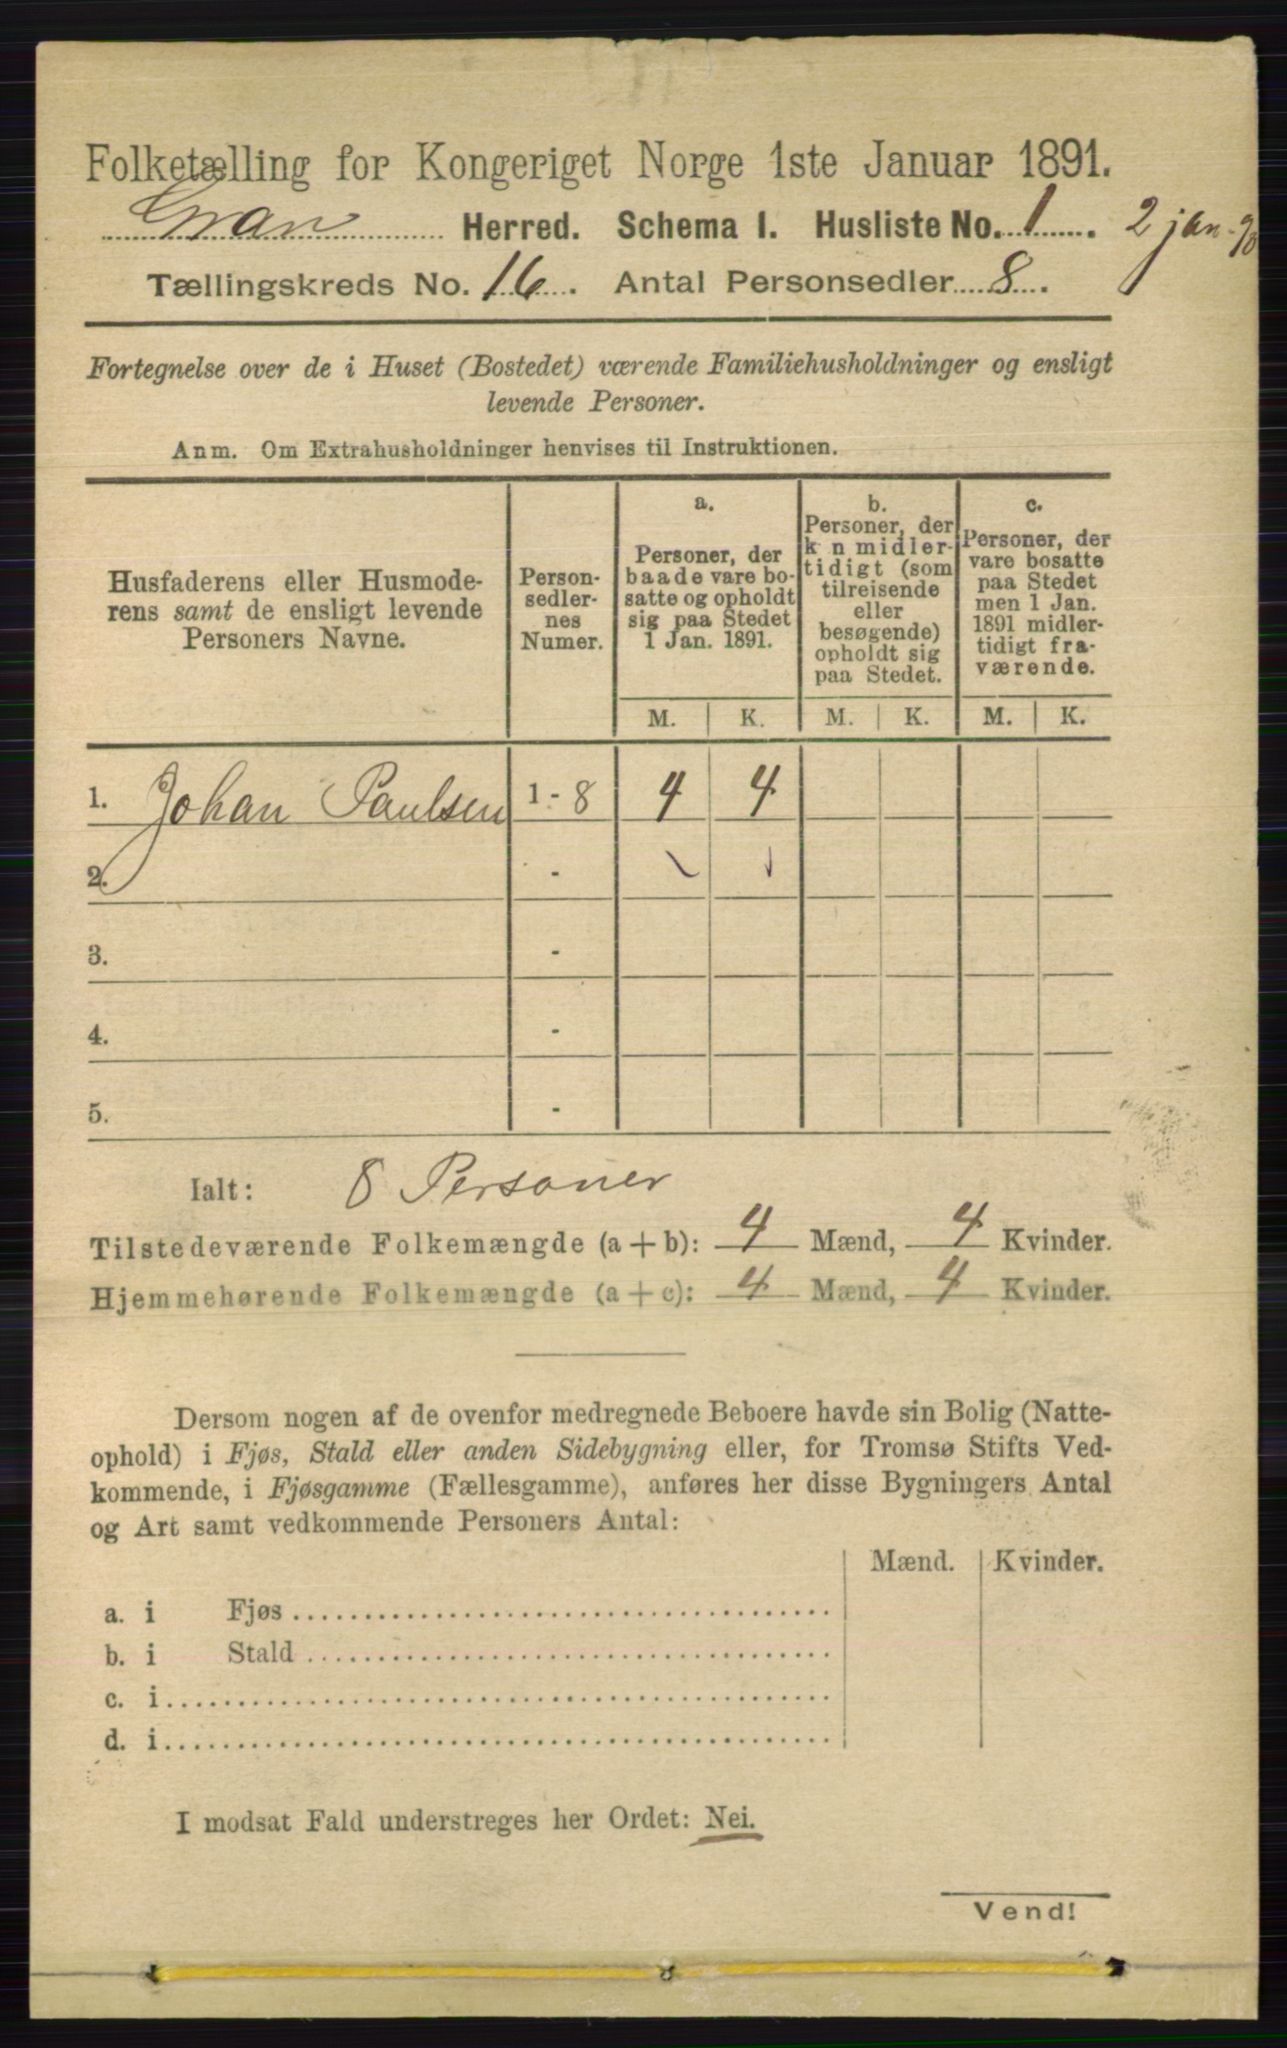 Folketælling for Kongeriget Norge 1ste Januar 1891.
Gran Herred. Schema I. Husliste No. 1. 2 jan.
Tællingskreds No. 16. Antal Personsedler 8.
Fortegnelse over de i Huset (Bostedet) værende Familiehusholdninger og ensligt
levende Personer.
Anm. Om Extrahusholdninger henvises til Instruktionen.
Husfaderens eller Husmode-
rens samt de ensligt levende
Personers Navne.
Person-
sedler-
nes
Numer.
a.
Personer, der
baade vare bo-
satte og opholdt
sig paa Stedet
1 Jan. 1891.
b.
Personer, der
k n midler-
tidigt (som
tilreisende
eller
besøgende)
opholdt sig
paa Stedet.
c.
Personer, der
vare bosatte
paa Stedet
men 1 Jan.
1891 midler-
tidigt fra-
værende.
M. K. M. K. M. K.
1. Johan Paulsen 1 - 8 4 4
2. -
3. -
4. -
5. -
Ialt: 8 Personer
Tilstedeværende Folkemængde (a + b): 4 Mænd, 4 Kvinder.
Hjemmehørende Folkemængde (a + c): 4 Mænd, 4 Kvinder.
Dersom nogen af de ovenfor medregnede Beboere havde sin Bolig (Natte-
ophold) i Fjøs, Stald eller anden Sidebygning eller, for Tromsø Stifts Ved-
kommende, i Fjøsgamme (Fællesgamme), anføres her disse Bygningers Antal
og Art samt vedkommende Personers Antal:
Mænd. Kvinder.
a. i Fjøs
b. i Stald
c. i
d. i
I modsat Fald understreges her Ordet: Nei.
Vend!